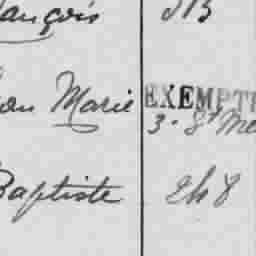 ançois 513
an Marie EXEMPT
3. 8t Me
Baptiste Eh 8